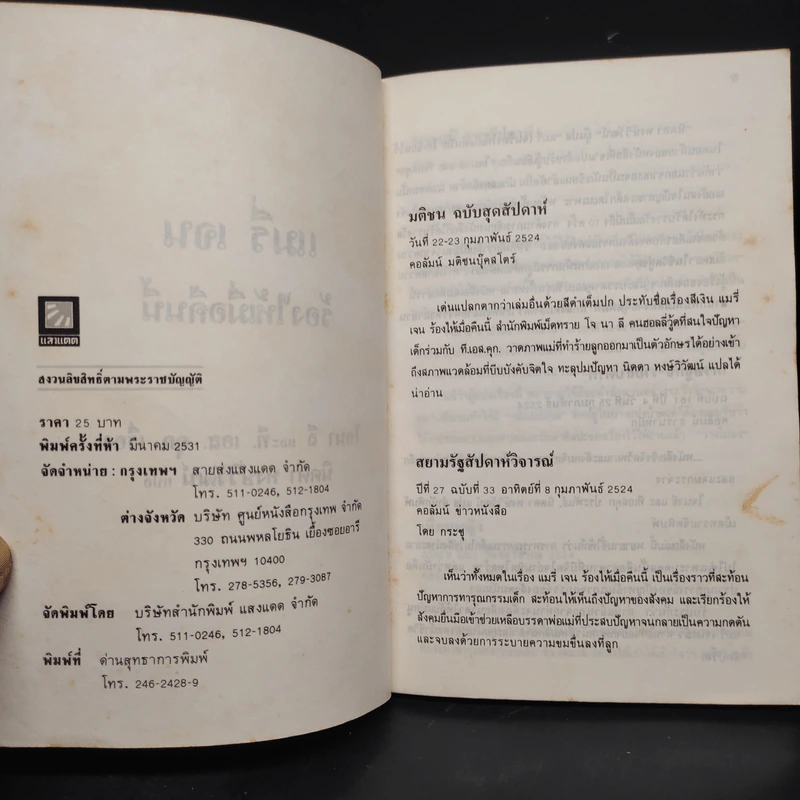 แสงแดด
สงวนลิขสิทธิ์ตามพระราชบัญญัติ
ราคา 25 บาท
พิมพ์ครั้งที่ห้า มีนาคม 2531
จัดจำหน่าย : กรุงเทพฯ สายส่งแสงแดด จำกัด
โทร. 511-0246, 512-1804
ต่างจังหวัด บริษัท ศูนย์หนังสือกรุงเทพ จำกัด
330 ถนนพหลโยธิน เยื้องซอยอารี
กรุงเทพฯ 10400
โทร. 278-5356, 279-3087
จัดพิมพ์โดย บริษัทสำนักพิมพ์ แสงแดด จำกัด
โทร. 511-0246, 512-1804
พิมพ์ที่ ด่านสุทธาการพิมพ์
โทร. 246-2428-9
มติชน ฉบับสุดสัปดาห์
วันที่ 22-23 กุมภาพันธ์ 2524
คอลัมน์ มติชนบุ๊คสโตร์
เด่นแปลกตากว่าเล่มอื่นด้วยสีดำเต็มปก ประทับชื่อเรื่องสีเงิน แมรี่
เจน ร้องไห้เมื่อคืนนี้ สำนักพิมพ์เม็ดทราย โจ นา ลี คนฮอลลี่วู้ดที่สนใจปัญหา
เด็กร่วมกับ ที.เอส.คุก. วาดภาพแม่ที่ทำร้ายลูกออกมาเป็นตัวอักษรได้อย่างเข้า
ถึงสภาพแวดล้อมที่บีบบังคับจิตใจ ทะลุปมปัญหา นิดดา หงษ์วิวัฒน์ แปลได้
น่าอ่าน
สยามรัฐสัปดาห์วิจารณ์
ปีที่ 27 ฉบับที่ 33 อาทิตย์ที่ 8 กุมภาพันธ์ 2524
คอลัมน์ ข่าวหนังสือ
โดย กระชุ
เห็นว่าทั้งหมดในเรื่อง แมรี่ เจน ร้องไห้เมื่อคืนนี้ เป็นเรื่องราวที่สะท้อน
ปัญหาการทารุณกรรมเด็ก สะท้อนให้เห็นถึงปัญหาของสังคม และเรียกร้องให้
สังคมยื่นมือเข้าช่วยเหลือบรรดาพ่อแม่ที่ประสบปัญหาจนกลายเป็นความกดดัน
และจบลงด้วยการระบายความขมขื่นลงที่ลูก